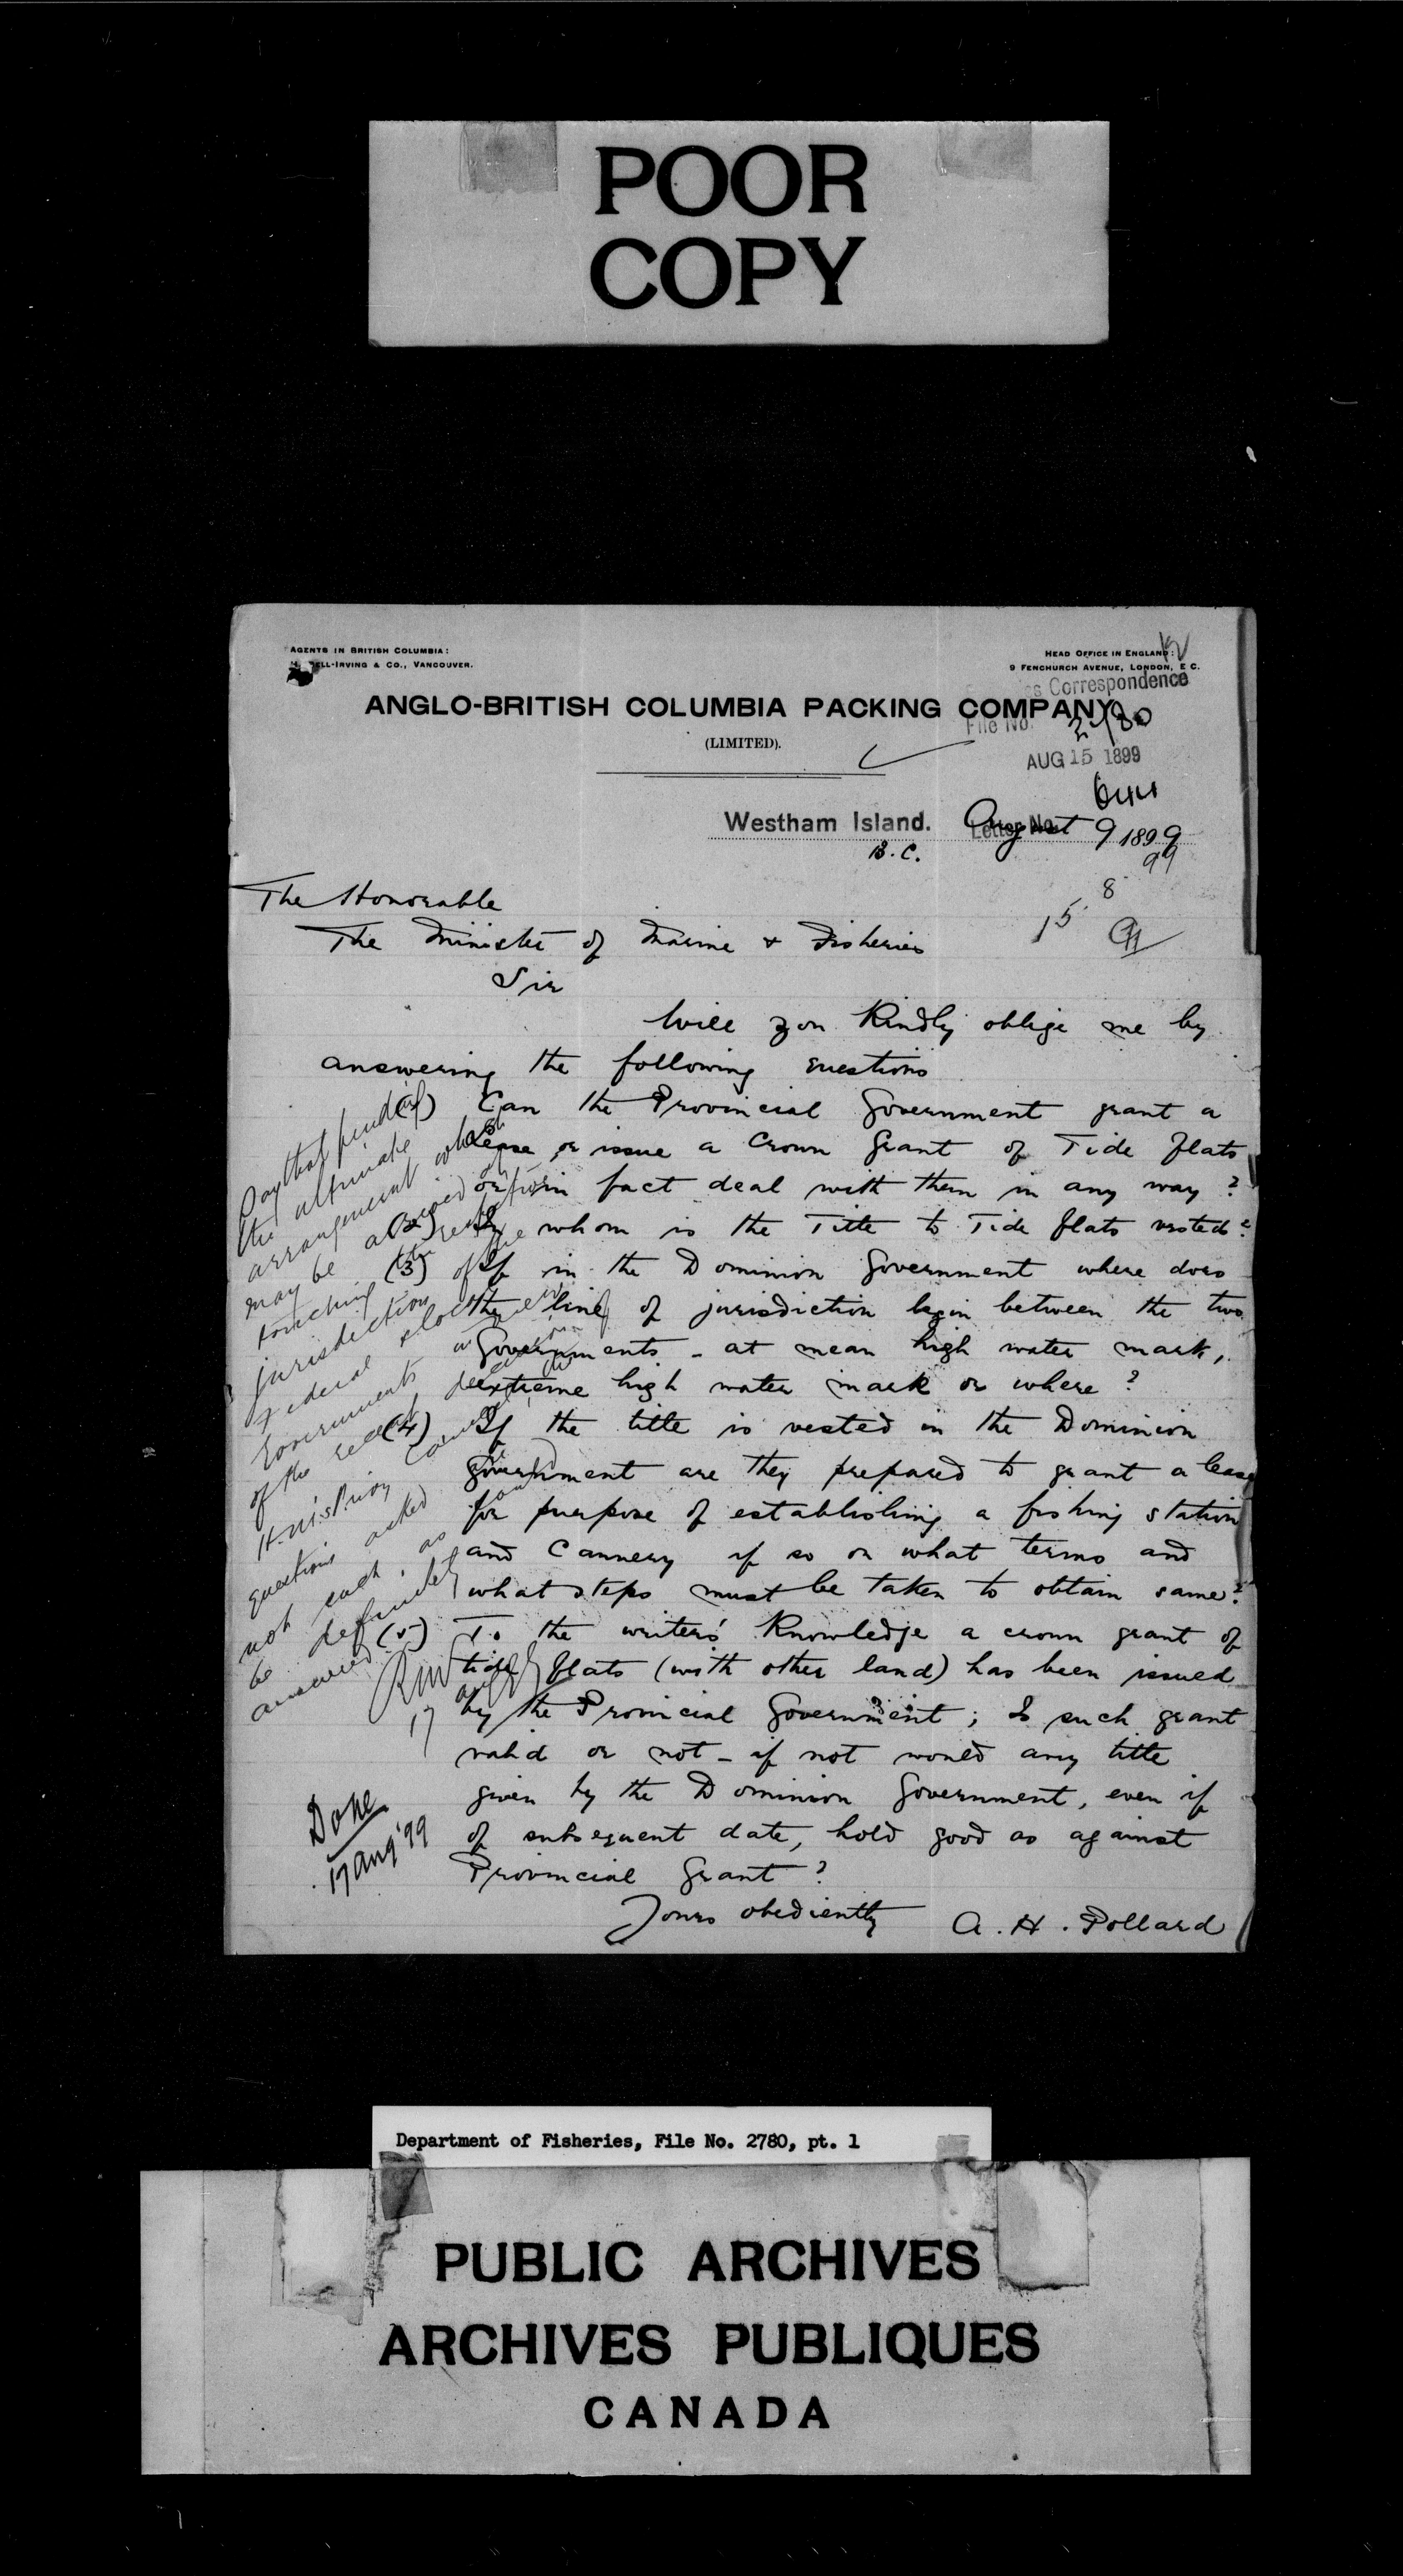 POOR
COPY
AGENTS IN BRITISH COLUMBIA:
ELL-IRVING & CO., VANCOUVER.
HEAD OFFICE IN ENGLAND:
9 FENCHURCH AVENUE, LONDON, E C.
s Correspondence
ANGLO-BRITISH COLUMBIA PACKING COMPANY
File No. 2780
(LIMITED).
AUG 15 1899
644
Westham Island. Letter No. August 9 1899
B.C.
99
8
15
The Honorable
The Minister of Marine & Fisheries
Sir
Will you Kindly oblige me by
answering the following questions
(1) Can the Provincial Government grant a
Lease or issue a Crown Grant of Tide flats
or in fact deal with them in any way?
(2) In whom is the Title to Tide flats vested?
(3) If in the Dominion Government where does
the line of jurisdiction begin between the two
Governments - at mean high water mark,
extreme high water mark or where?
(4) If the title is vested in the Dominion
Government are they prepared to grant a lease
for purpose of establishing a fishing station
and Cannery if so on what terms and
what steps must be taken to obtain same?
(5) To the writers' Knowledge a crown grant of
tide flats (with other land) has been issued
by the Provincial Government; Is such grant
valid or not - if not would any title
given by the Dominion Government, even if
of subsequent date, hold good as against
Provincial Grant?
Yours obediently A. H. Pollard
Say that pending
the ultimate
arrangement which
may be arrived at
touching the respective
jurisdiction of the
Federal & local
Governments in view
of the recent decision of
H.M's Privy Council, the
questions asked
not such, as could
be definitely
answered.
17 aug
Done
17 Aug '99
Department of Fisheries, File No. 2780, pt. 1
PUBLIC ARCHIVES
ARCHIVES PUBLIQUES
CANADA